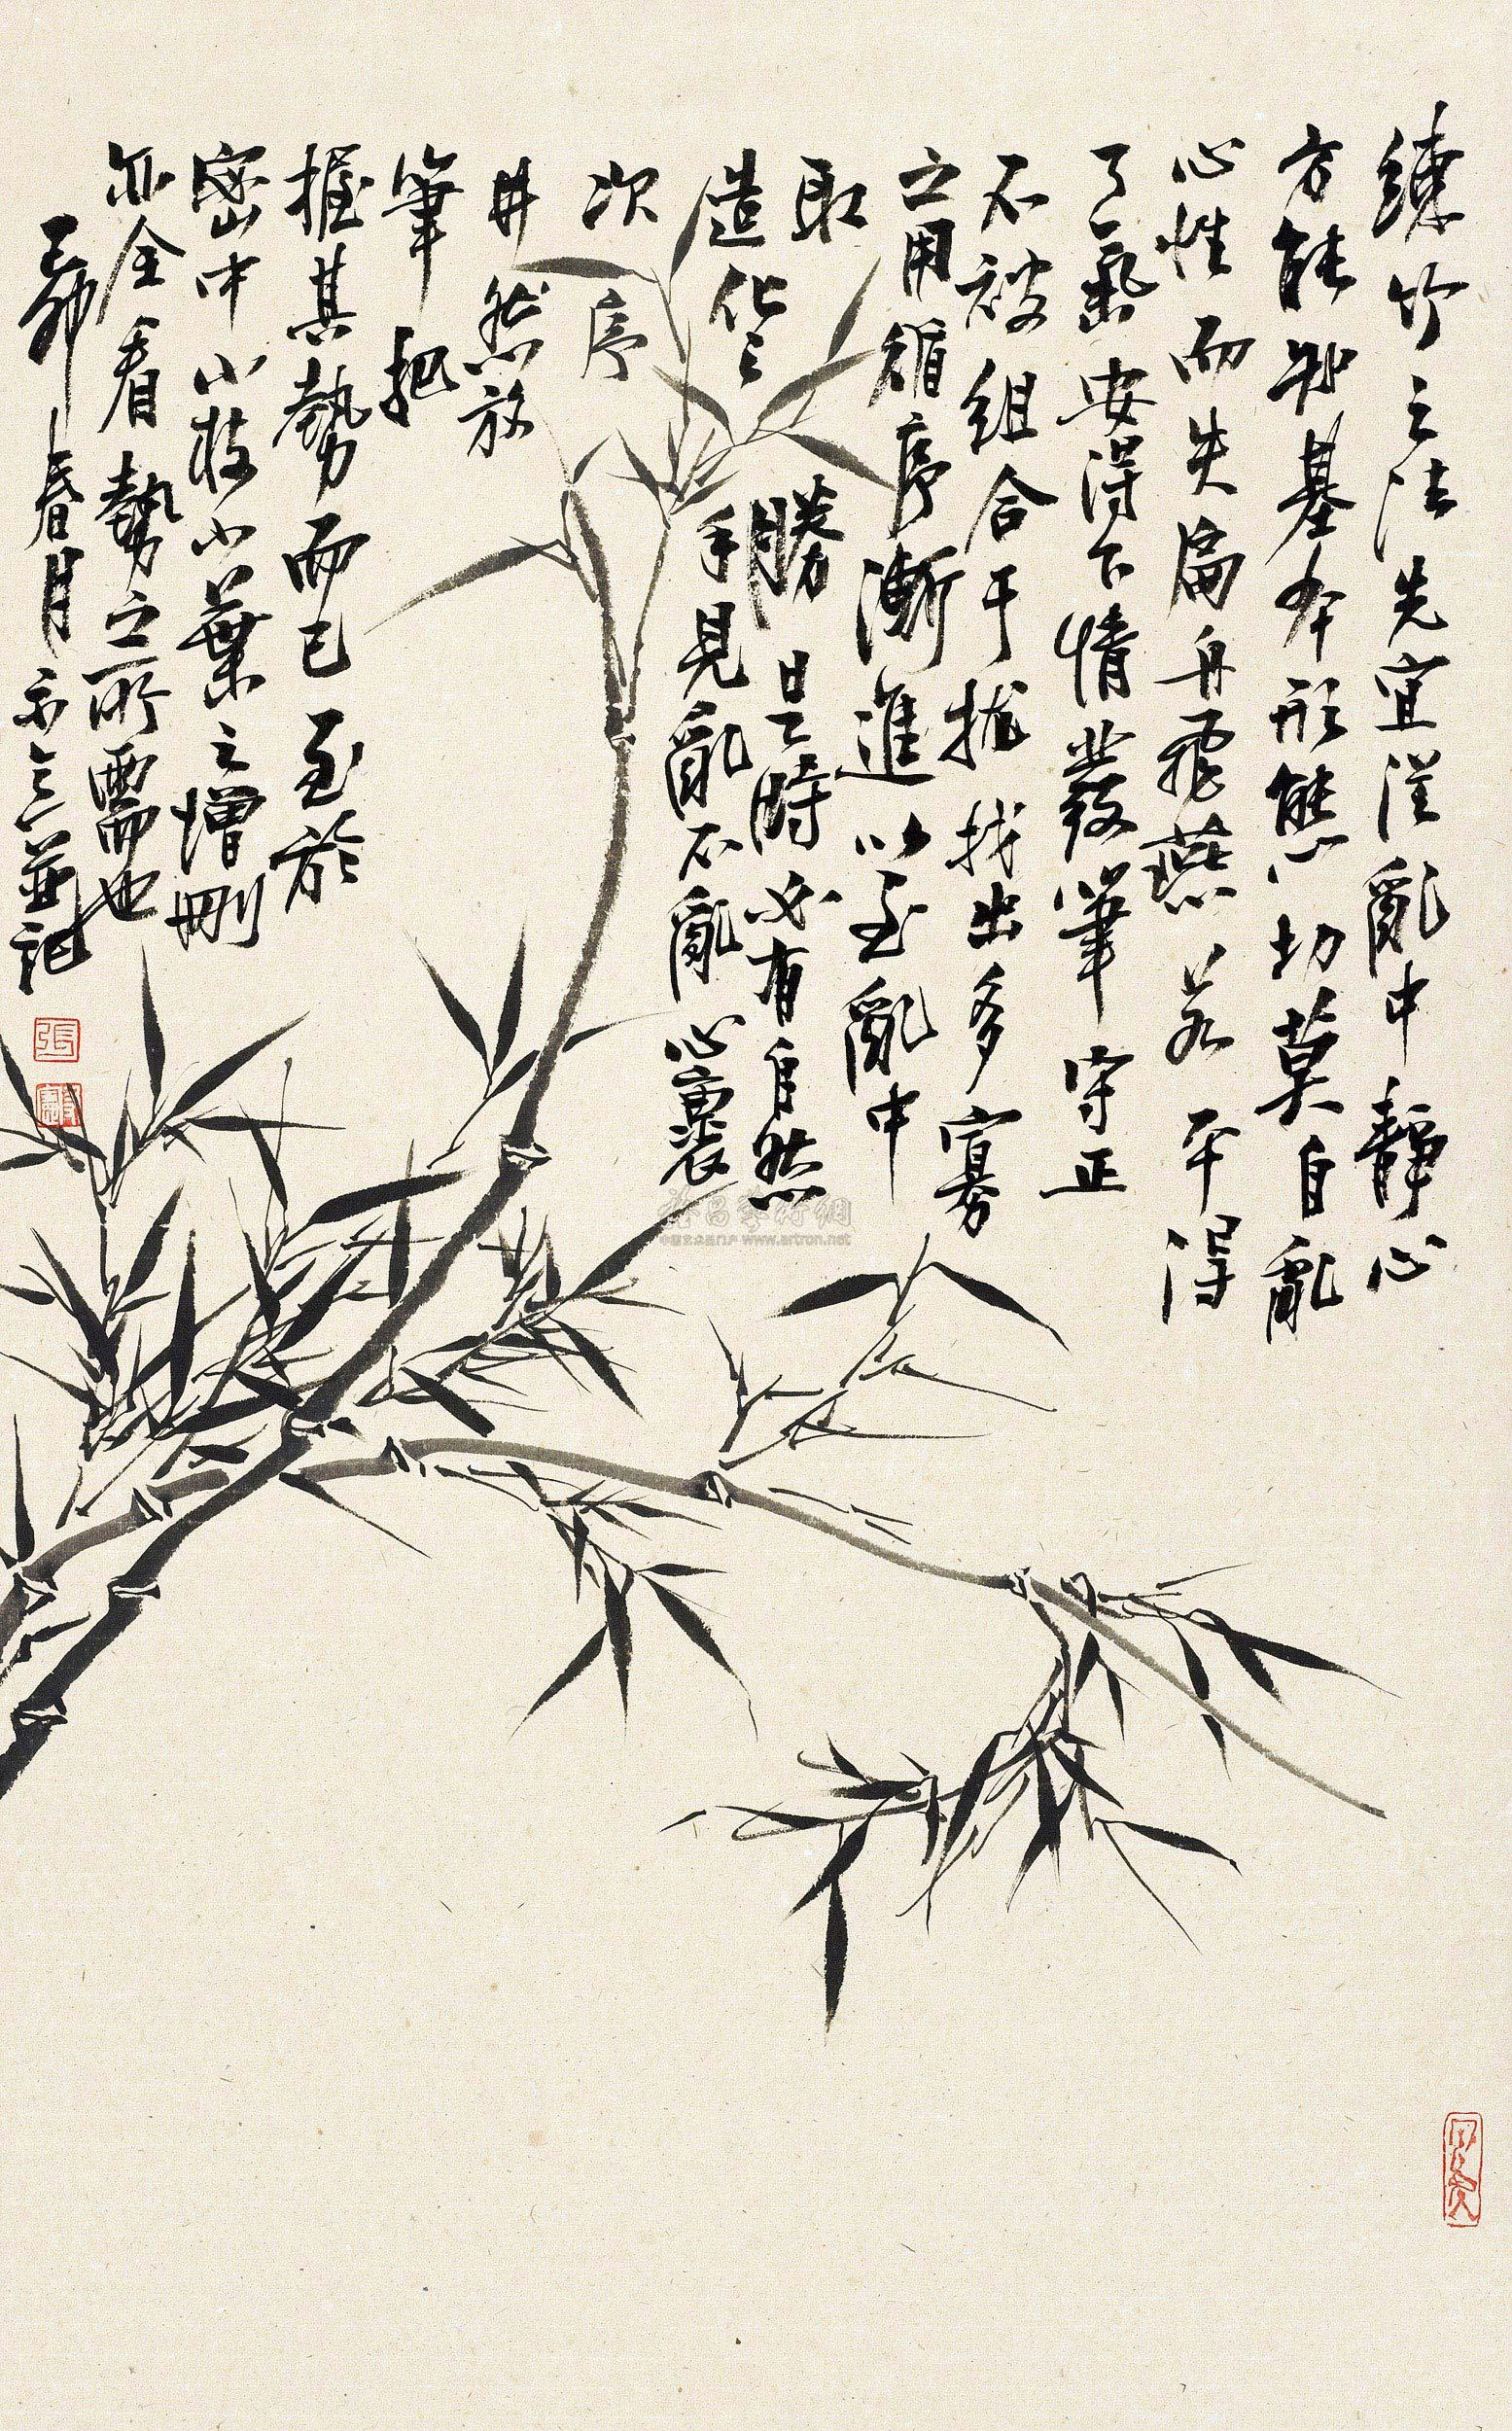 練竹之法先宜從亂中靜心
方能知基本形態切莫自亂
心性而失扁舟飛燕若平得
了氣安得下情發筆守正
不被組合干擾找出多寡
之用循序漸進以至亂中
取勝是時必有自然
造化之手見亂不亂心裏
次序
井然放
筆把
握其勢而已至於
密中小枝小葉之增刪
亦全看勢之所需也
春月並記
張
www.artron.net